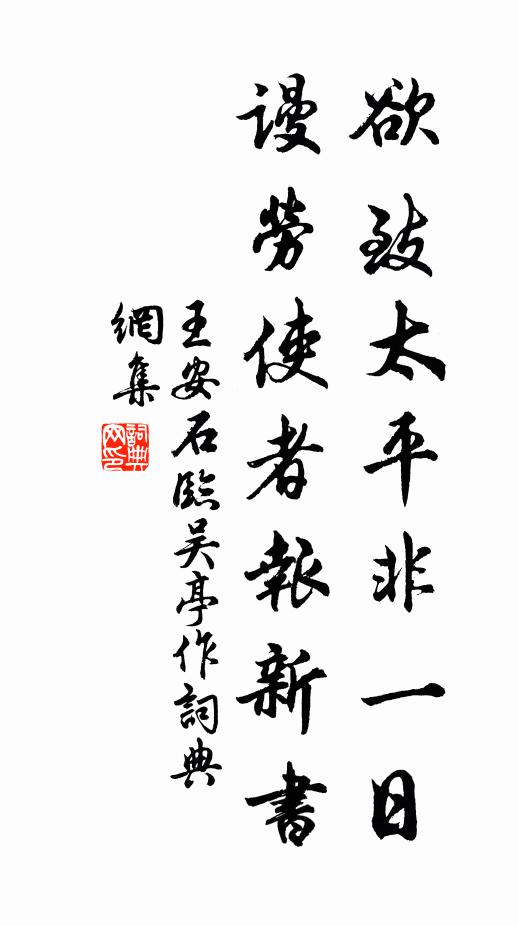 欲致太平非一日
謾勞使者報新書
王安石臨吴亭作詞典
網集
詞典
网印